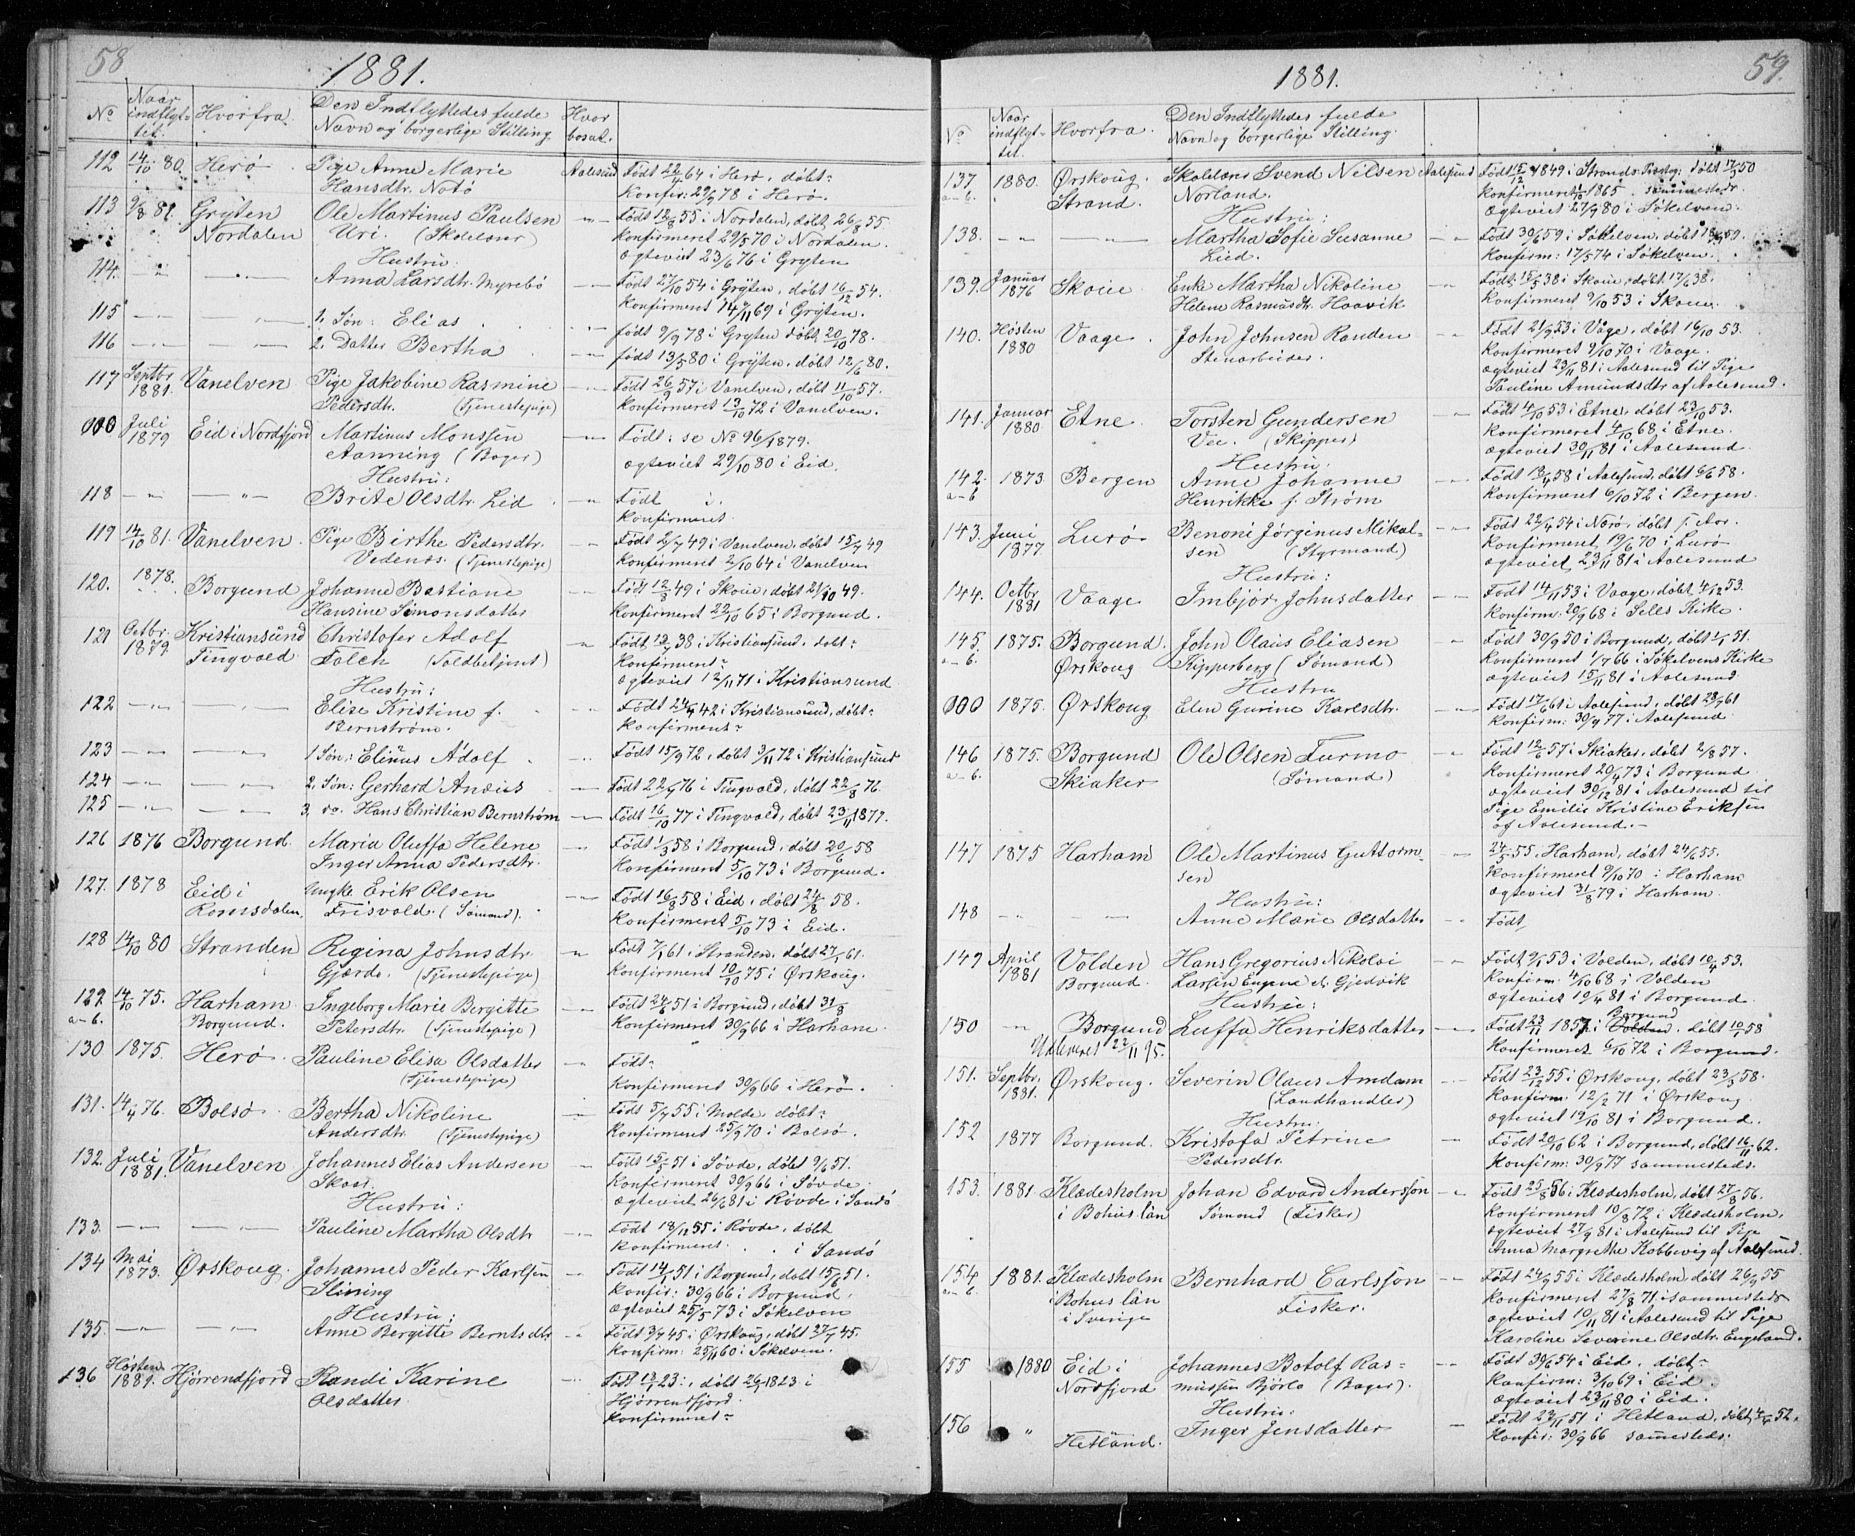 58
1881.
No
Naar indflyttet.
Hvorfra.
Den Indflyttedes fulde Navn og borgerlige Stilling.
Hvor bosat.
112 14/10 80. Herö. Pige Anne Marie Aalesund Födt 22/ 64 i Herö, döbt:
Hansdtr. Notö Konfir: 29/9 78 i Herö.
113 9/8 81. Gryten Ole Martinus Paulsen -"- Födt 12/8 55 i Nordalen, döbt 26/8 55.
Nordalen Uri. (Skolelærer) Konfirmeret 29/5 70 i Nordalen.
Hustru: Ægteviet 23/6 76 i Gryten
114. " -"- Anna Larsdtr. Myrebö -"- Födt 27/10 54 i Gryten, döbt 16/12 54.
Konfirmeret 14/11 69 i Gryten.
115 -"- -"- 1. Sön: Elias -"- födt 9/9 78 i Gryten döbt 20/10 78.
116 -"- -"- 2. Datter Bertha -"- födt 13/5 80 i Gryten, döbt 12/6 80.
117 Septbr. 1881. Vanelven Pige Jakobine Rasmine -"- Födt 26/9 57 i Vanelven, döbt 11/10 57.
Pedersdtr. (Tjenestepige) Konfirmeret 13/10 72 i Vanelven.
000 Juli 1879 Eid i Nordfjord Martinus Monssen -"- Födt: se No 96/1879.
Aanning (Bager) Ægteviet 29/10 80 i Eid.
Hustru:
118 -"- -"- Brite Olsdtr. Lid -"- Födt i
Konfirmeret.
119 14/10 81. Vanelven. Pige Birthe Pedersdtr. -"- Födt 2/7 49 i Vanelven, döbt 15/7 49
Vedenes. (Tjenestepige) Konfirmeret 2/10 64 i Vanelven
120. 1878. Borgund Johanne Bastiane -"- Födt 12/3 49 i Skoue, döbt 21/10 49.
Hansine Simonsdatter Konfirmeret 22/10 65 i Borgund.
121 Octbr. 1879 Kristiansund Christofer Adolf -"- Födt 13/7 38 i Kristiansund, döbt:
Tingvold Falch (Toldbetjent) Konfirmeret:
Hustru: Ægteviet 12/11 71 i Kristiansund.
122 -"- -"- Elise Kristine f. -"- Födt 24/7 42 i Kristiansund, döbt:
Bernström. Konfirmeret:
123 -"- -"- 1 Sön: Elinus Adolf -"- Födt 15/9 72, döbt 3/11 72 i Kristiansund
124 -"- -"- 2. Sön: Gerhard Anæus -"- Födt 22/7 76 i Tingvold, döbt 22/8 76.
125 -"- -"- 3. do. Hans Christian Bernström -"- Födt 16/10 77 i Tingvold, döbt 23/11 1877.
126 1876 Borgund Maria Oluffa Helene -"- Födt 1/3 58 i Borgund, döbt 20/6 58
Inger Anna Pedersdtr. Konfirmeret 5/10 73 i Borgund.
127. 1878 Eid i Ungke Erik Olsen -"- Födt 16/8 58 i Eid, döbt 24/8 58.
Romsdalen, Frisvold. (Sömand). Konfirmeret 5/10 73 i Eid.
128 14/10 80 Stranden Regina Johnsdtr. -"- Födt 7/1 61, i Stranden, döbt 27/1 61.
Gjærde. (Tjenestepige) Konfirmeret 10/10 75 i Ørskoug.
129. a-b. 14/10 75. Harham Ingeborg Marie Bergitte -"- Födt 24/6 51 i Borgund, döbt 31/8
Borgund. Petersdtr. (Tjenestepige) Konfirmeret 30/9 66 i Harham.
130 1875. Herö. Pauline Elisa Olsdatter -"- Födt:
(Tjenestepige) Konfirmeret 30/9 66 i Herö.
131. 14/4 76. Bolsö. Bertha Nikoline -"- Födt 5/7 55 i Molde, döbt:
Andersdtr. (Tjenestepige) Konfirmeret 25/9 70 i Bolsö.
132. Juli 1881. Vanelven Johannes Elias Andersen -"- Födt 15/5 51 i Sövde, döbt 9/6 51.
Skaar. Konfirmeret 30/9 66 i Sövde.
Hustru: Ægteviet 26/6 81 i Rövde i Sandö
133. -"- -"- Pauline Martha Olsdtr. -"- Födt 18/11 55 i Rövde, döbt
Konfirmeret. . . i Sandö
134 Mai 1873. Ørskoug. Johannes Peder Karlsen -"- Födt 14/1 51 i Borgund, döbt 15/6 51.
Slinning Konfir: 30/9 66 i Borgund.
Hustru: Ægteviet 25/5 73 i Sökelven
135. -"- -"- Anne Bergitte Berntsdtr. -"- Födt 3/7 45 i Ørskoug, döbt 27/7 45.
Konfirm: 25/11 60 i Sökelven.
136 Hösten 1881. Hjörrendfjord Randi Karine -"- Födt 13/1 23:, döbt 26/1 1823 i
Olsdatter Hjörrendfjord.
Konfirmeret:
59.
1881.
No
Naar indflyttet.
Hvorfra.
Den Indflyttedes fulde Navn og borgerlige Stilling.
137. a-b. 1880. Ørskoug. Skolelærer Svend Nilsen Aalesund Födt 15/12 1849 i Strands Præstgj. döbt 17/2 50
Strand. Norland. Konfirmeret 1/10 1865. sammesteds.
Hustru: Ægteviet 27/9 80 i Sökelven.
138. -"- -"- Martha Sofie Susanne -"- Födt 30/6 59 i Sökelven, döbt 18/9 59.
Lied. Konfirm: 17/5 74 i Sökelven.
139. Januar 1876 Skoue Enke Martha Nikoline -"- Födt 15/5 38 i Skoue, döbt 17/6 38.
Helene Rasmusdtr. Haavik Konfirmeret 9/10 53 i Skoue.
140. Hösten 1880 Vaage. John Johnsen Randen -"- Födt 21/9 53 i Våge, döbt 16/10 53.
Stenarbeider. Konfirmeret 9/10 70 i Vaage.
Ægteviet 23/11 81 i Aalesund til Pige
Pauline Amundsdtr. af Aalesund.
141. Januar 1880 Etne. Torsten Gundersen -"- Födt 4/10 53 i Etne, döbt 23/10 53.
Vee. (Skipper) Konfirmeret 4/10 68 i Etne.
Hustru: Ægteviet 30/11 81 i Aalesund.
142. a-b 1873. Bergen Anne Johanne -"- Födt 13/4 58 i Aalesund, döbt 6/6 58.
Henrikke f. Ström Konfirmeret 6/10 72 i Bergen.
143. Juni 1877 Lurö. Benoni Jörginus Mikalsen -"- Födt 22/4 54 i Norö, döbt s. Aar.
(Styrmand) Konfirmeret 19/6 70 i Lurö
Hustru: Ægteviet 23/11 81 i Aalesund
144. Octbr. 1881 Vaage Imbjör Johnsdatter -"- Födt 14/11 53 i Vaage, döbt 4/12 53.
Konfirm: 20/9 68 i Sells Kirke.
145. a-b. 1875. Borgund. John Olais Eliasen -"- Födt 30/9 50 i Borgund, döbt 1/1 51.
Ørskoug Kipperberg (Sömand) Konfirmeret 1/7 66 i Sökelvens Kirke
Hustru Ægteviet 15/11 81 i Aalesund
000 1875. Ørskoug Elen Gurine Karlsdtr. -"- Födt 17/6 61 i Aalesund, döbt 23/6 61
Konfirm: 30/9 77 i Aalesund.
146 a-b. 1875. Borgund Ole Olsen Turmo -"- Födt 12/6 57 i Skiaker, döbt 2/8 57.
Skiaker (Sömand) Konfirmeret 20/4 73 i Borgund
Ægteviet 30/12 81 i Aalesund til
Pige Emilie Kristine Eriksen
af Aalesund.-
147 1875 Harham Ole Martinus Guttormsen -"- 24/5 55, Harham, döbt 24/6 55.
Konfirmeret 9/10 70 i Harham
Hustru: Ægteviet 31/8 79 i Harham.
148 -"- -"- Anne Marie Olsdatter -"- Födt,
149 April 1881 Volden Hans Gregorius Nikolai -"- Födt 9/1 53 i Volden, döbt 10/4 53.
Borgund. Larsen Eugene Gjedvik Konfirm: 4/10 68 i Volden
Hustru: Ægteviet 19/4 81 i Borgund.
150 -"- Borgund Luffa Henriksdatter -"- Födt 23/11 1857 i Borgund, döbt 10/1 58
Udleveret 22/11 95. Konfirmeret 6/10 72 i Borgund.
151. Septbr. 1881. Ørskoug. Severin Olaus Amdam -"- Födt 23/12 55 i Ørskoug, döbt 23/3 58.
(Landhandler) Konfirm: 12/2 71 i Ørskoug
Hustru: Ægteviet 19/10 81 i Borgund.
152 1877 Borgund. Kristofa Petrine -"- Födt 20/10 62 i Borgund, döbt 16/11 62.
Pedersdtr. Konfirm: 30/9 77 sammesteds.
153. 1881 Klædesholm Johan Edvard Andersson -"- Födt 25/8 56 i Klædesholm, döbt 27/8 56.
i Bohus län Sömand (Fisker) Konfirmeret 10/8 72 i Klædesholm,
Ægteviet 27/9 81 i Aalesund til Pige
Anna Margrethe Kobbevig af Aalesund.
154 a-b. 1881. Klædesholm Bernhard Carlsson -"- Födt 24/9 55 i Klædesholm, döbt 26/9 55
i Bohus län Fisker. Konfirmeret 27/8 71 i sammesteds
i Sverige Ægteviet 10/11 81 i Aalesund til Pige
Karoline Severine Olsdtr. Engelund.
155 1880 Eid i Johannes Botolf Ras- -"- Födt 30/6 54 i Eid, döbt:
Nordfjord mussen Björlo (Bager). Konfirm: 3/10 69 i Eid.
Hustru: Ægteviet 23/11 80 i Eid.
156 " Hetland. Inger Jensdatter - Födt 22/11 51 i Hetland, döbt 4/1 52.
Konfir: 30/9 66 sammesteds.